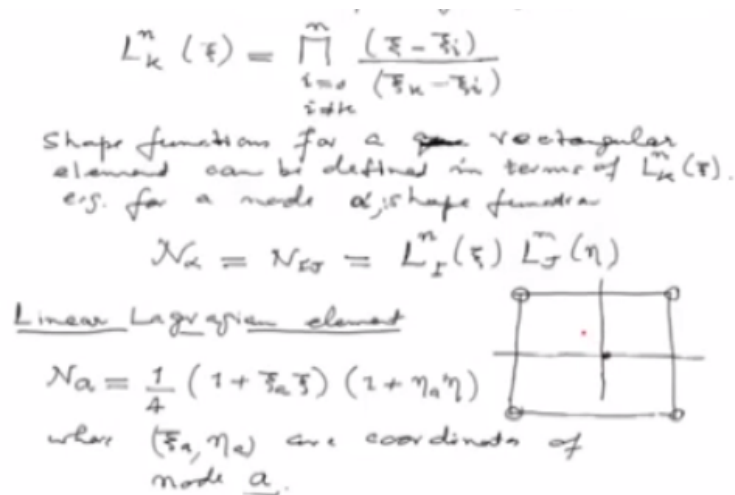 L_k^n (ξ) = ∏_{i=0, i≠k}^{n} (ξ - ξi) / (ξk - ξi)
Shape functions for a rectangular
element can be defined in terms of L_k^n (ξ).
e.g. for a node α, shape function
Nα = N_IJ = L_I^n (ξ) L_J^m (η)
Linear Lagragian element
Na = 1/4 (1 + ξa ξ) (1 + ηa η)
where (ξa, ηa) are coordinates of
node a.